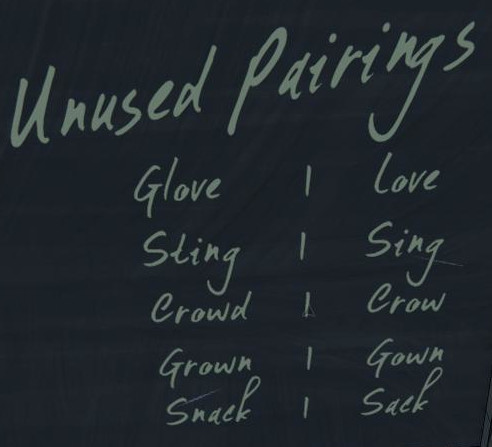 Unused Pairings
Glove | Love
Sting | Sing
Crowd | Crow
Grown | Gown
Snack | Sack